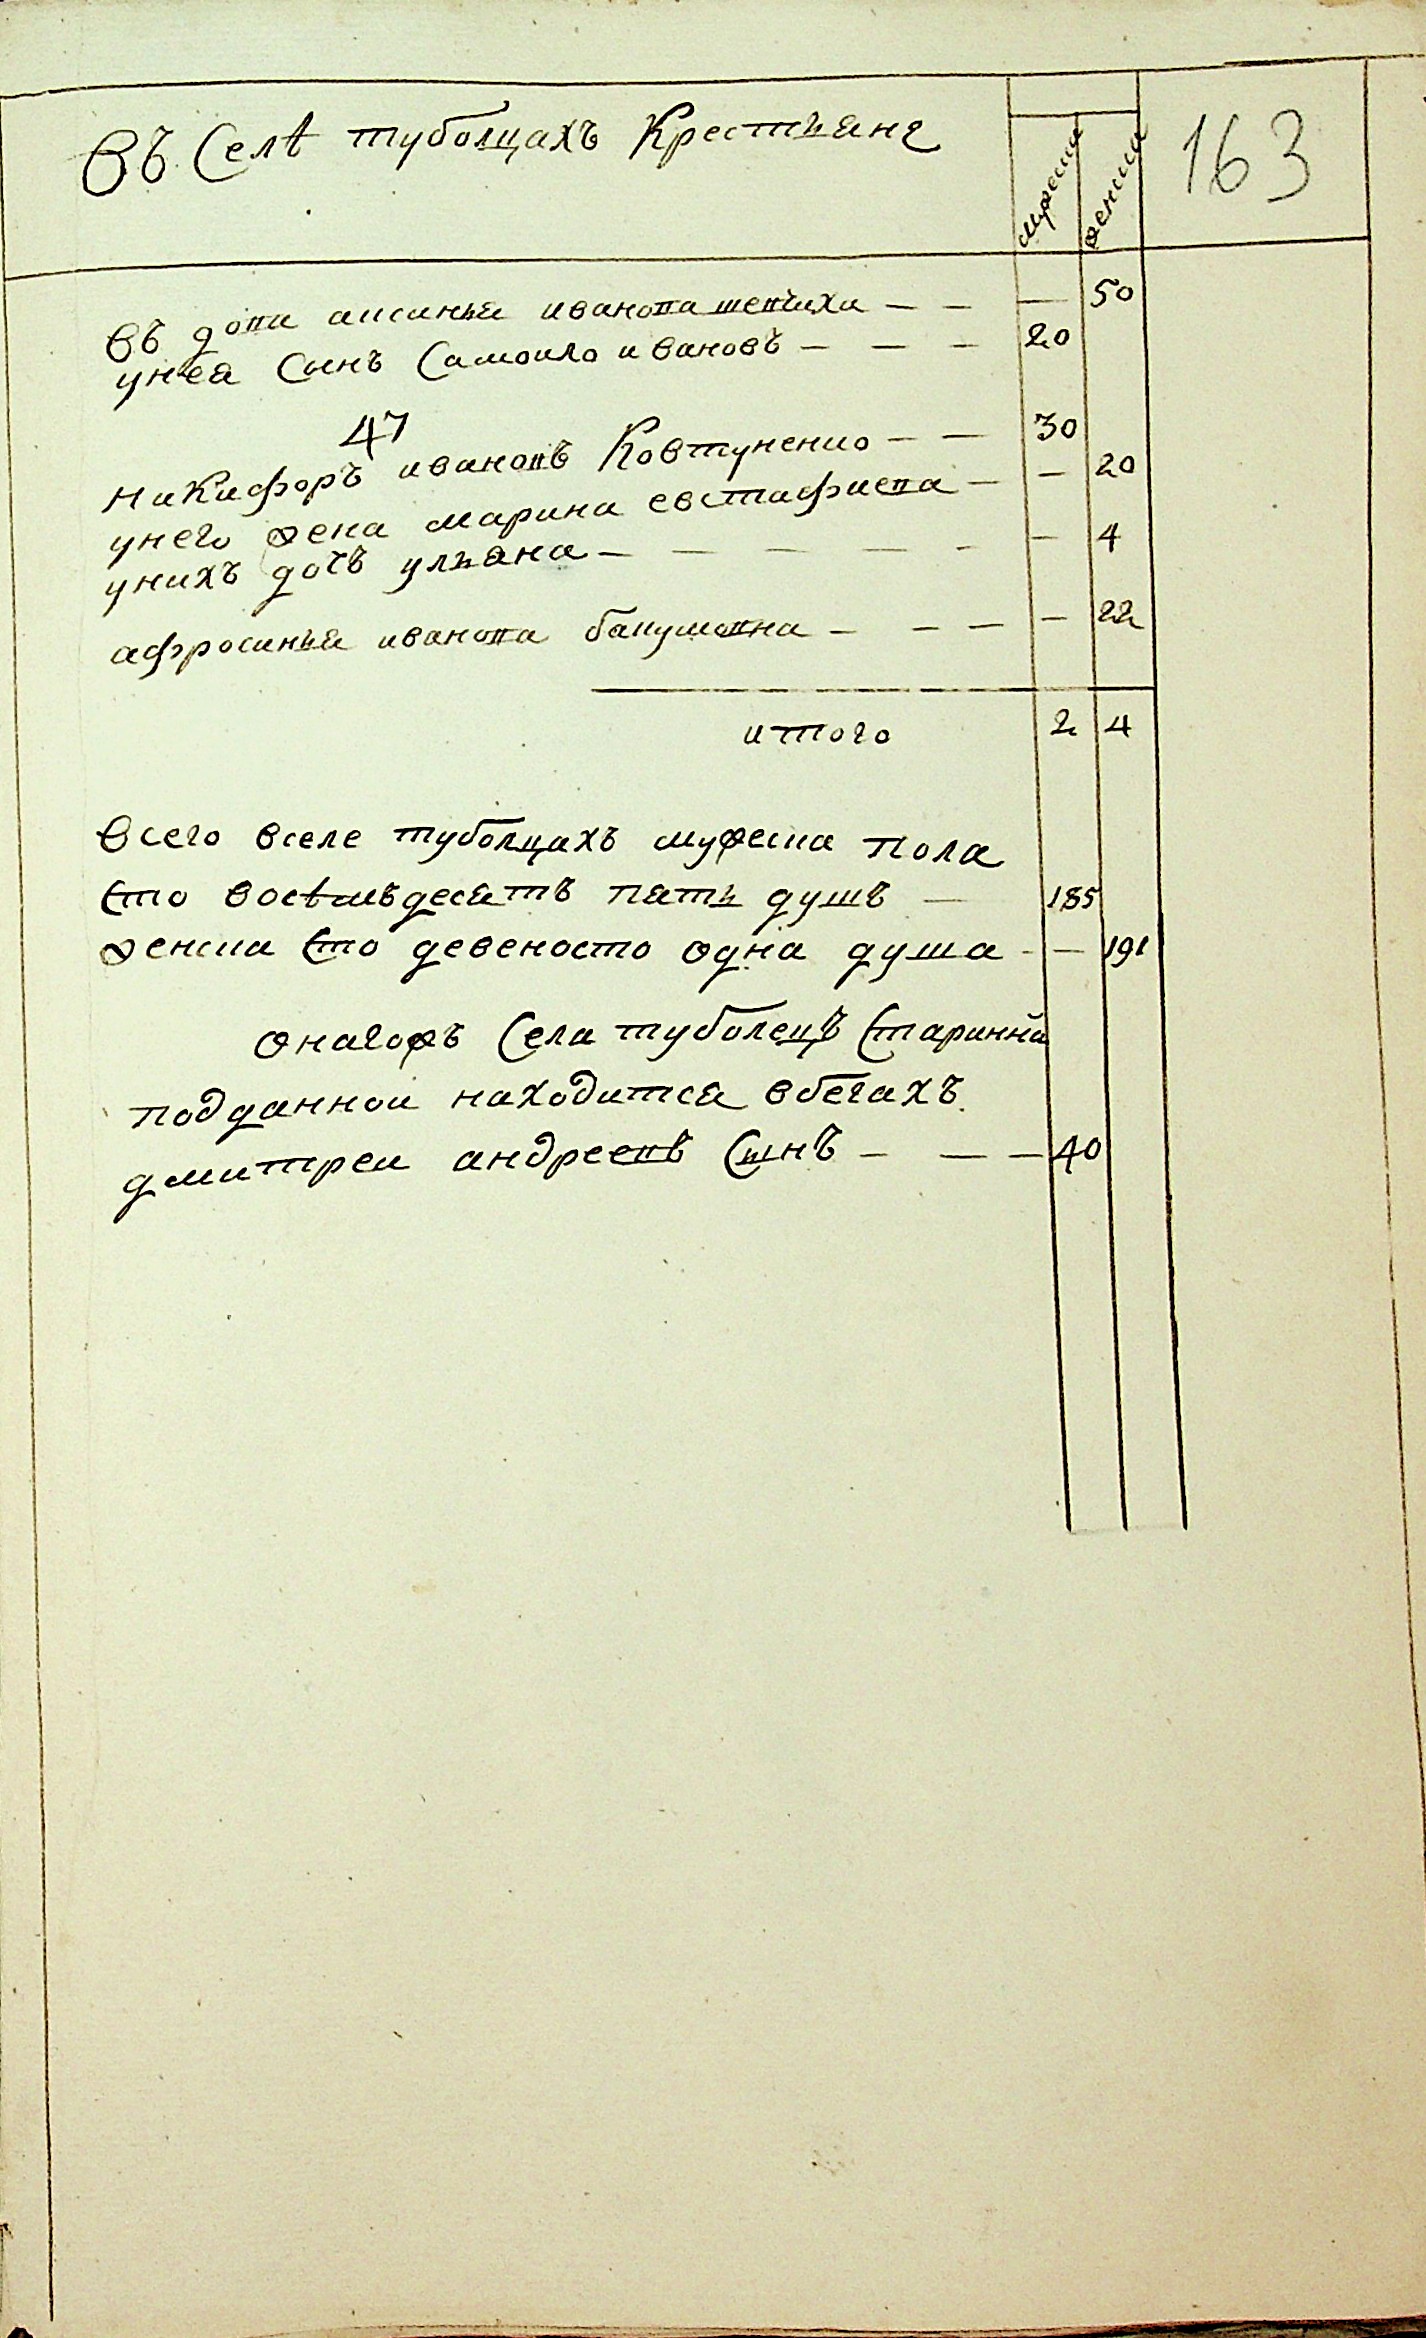 Въ Селѣ туболцахъ Крестьяне
мужеска
женска
163
въ дова аксинья иванова шевчиха — — — 50
унея Сынъ Самоило ивановъ — — — 20
47
никифоръ ивановъ Ковтуненко — — 30
унего жена марина евстафиева — — 20
унихъ дочь ульяна — — — — — — 4
афросинья иванова бакумовна — — — — 22
итого 2 4
всего вселе туболцахъ мужеска пола
Сто восѣмъдесятъ пять душъ — 185
женска Сто девеносто одна душа — — 191
оногожъ Села туболецъ Старинны
подданнои находится вбегахъ
дмитреи андреевъ Сынъ — — — 40